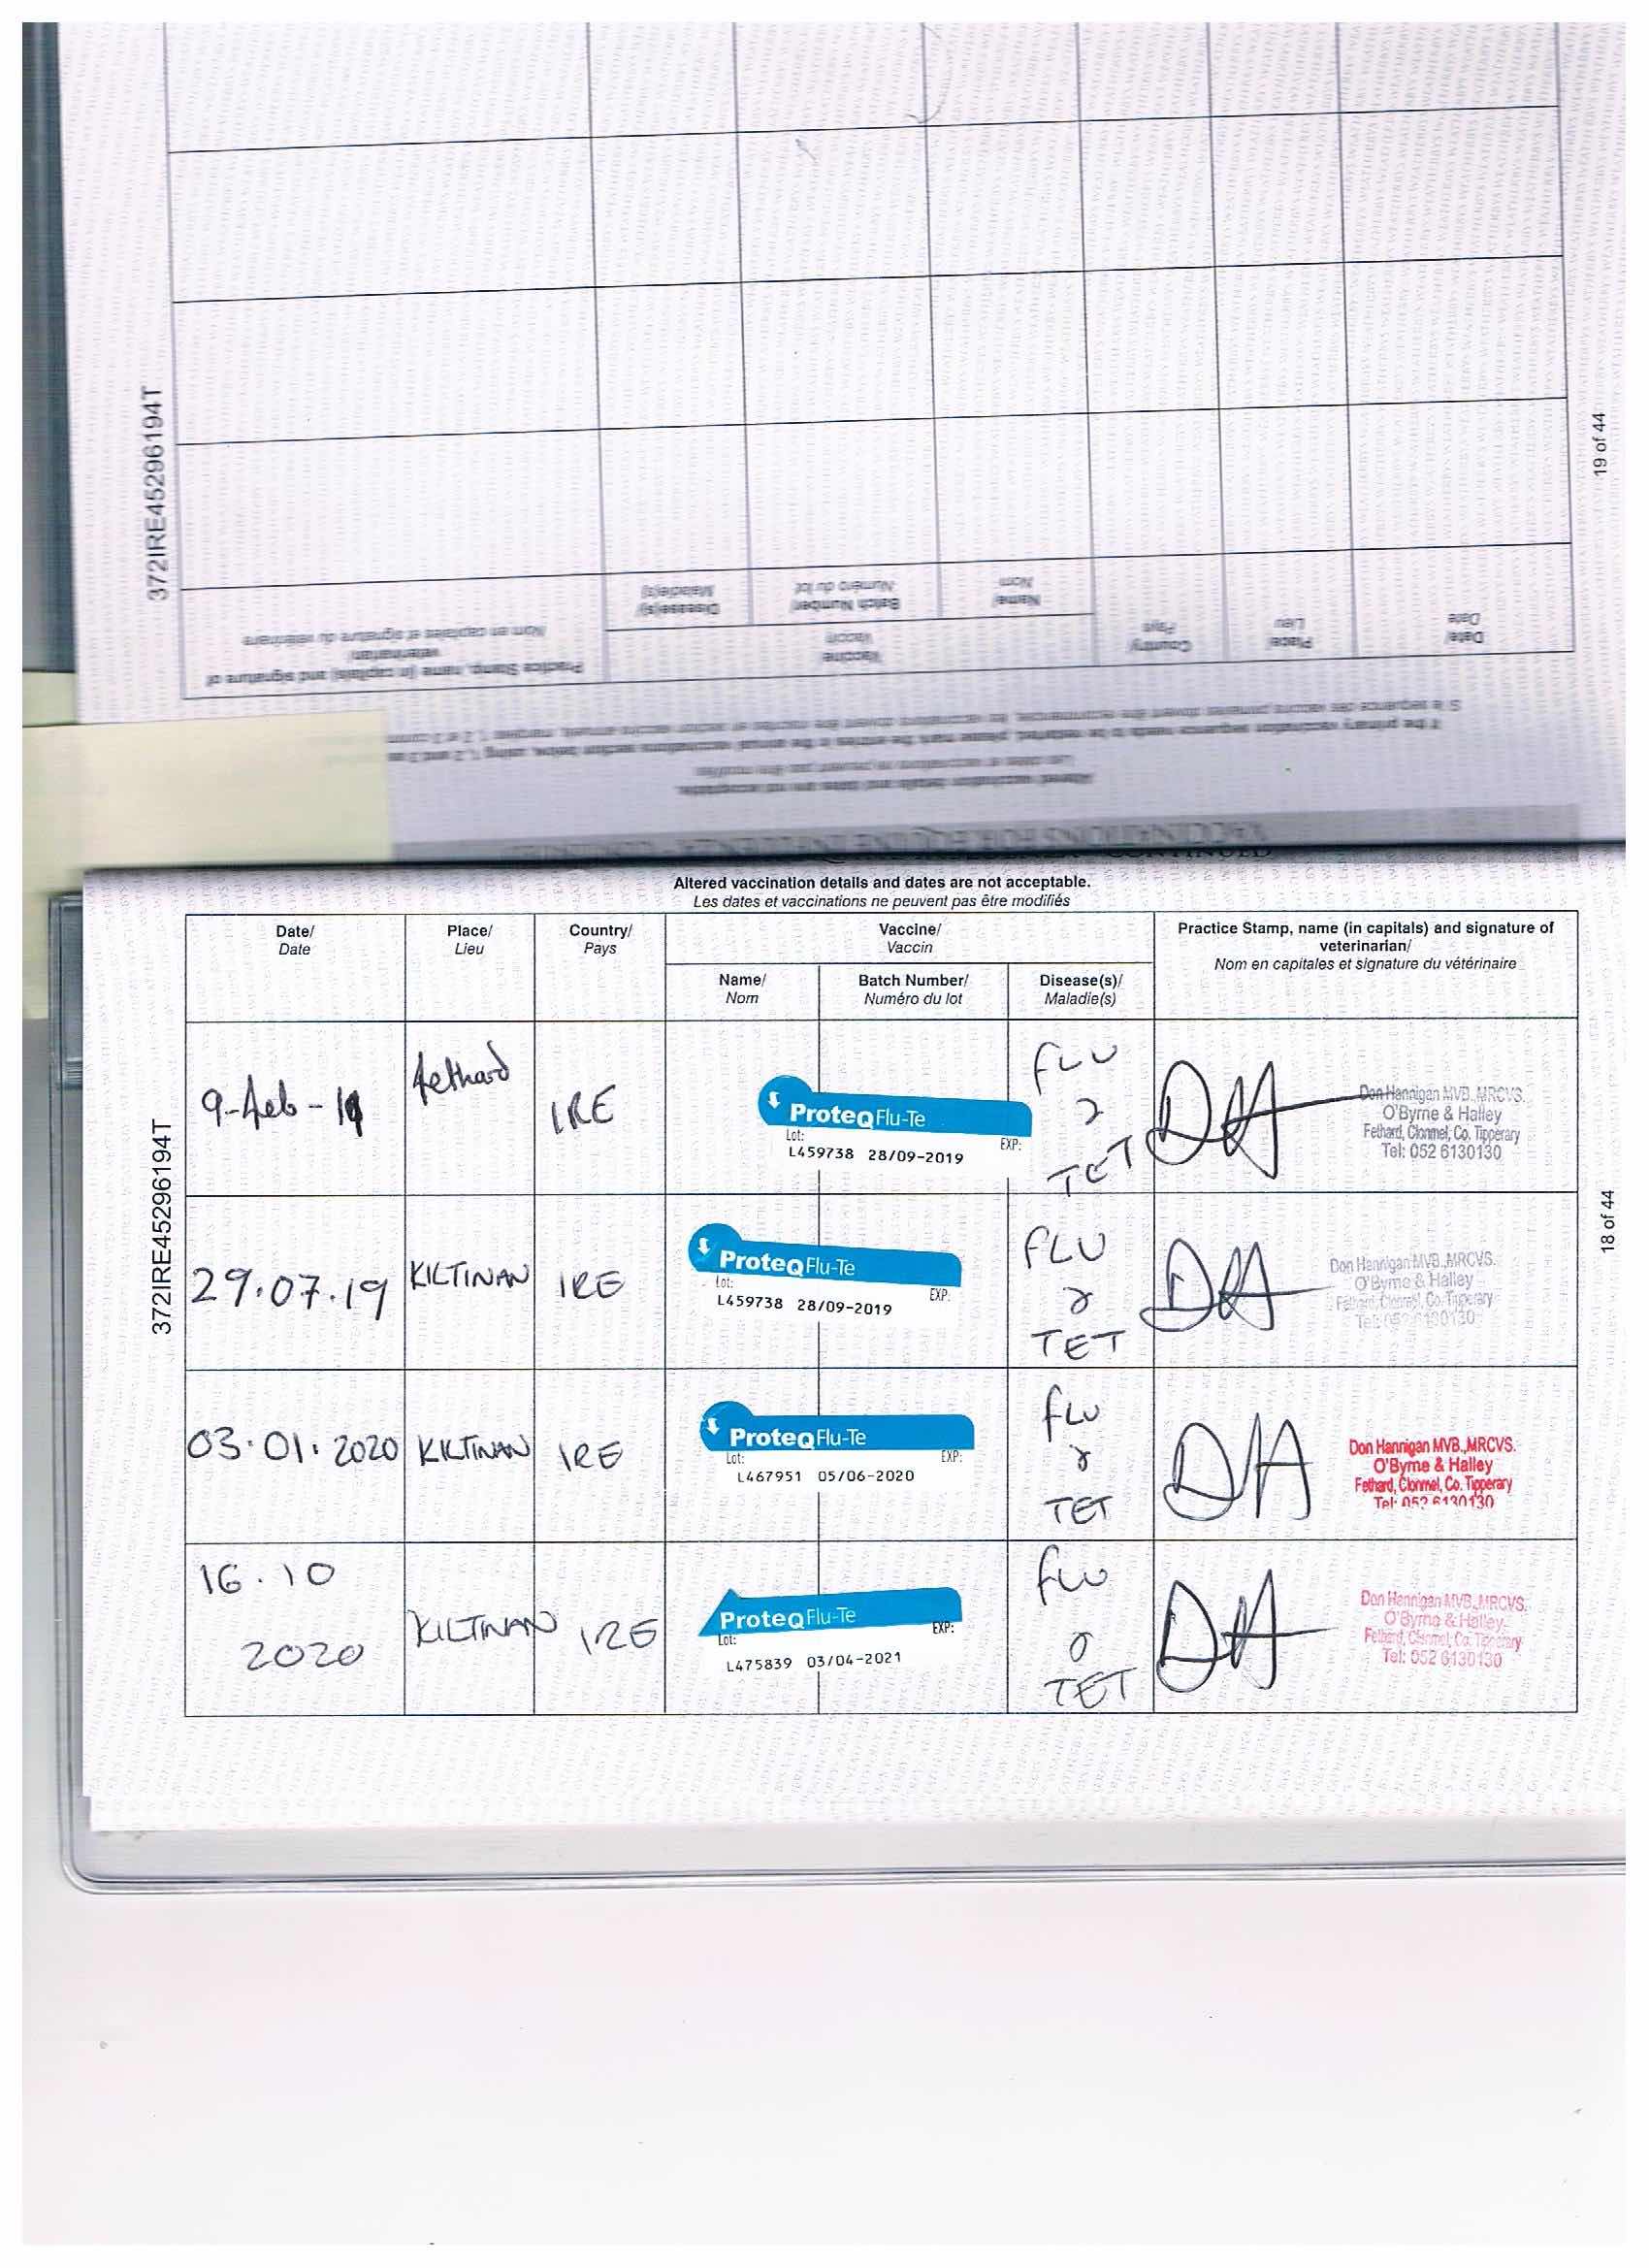 372IRE45296194T
19 of 44
Date/
Date
Place/
Lieu
Country/
Pays
Vaccine/
Vaccin
Name/
Nom
Batch Number/
Numéro du lot
Disease(s)/
Maladie(s)
Practice Stamp, name (in capitals) and signature of
veterinarian/
Nom en capitales et signature du vétérinaire
If the primary vaccination sequence needs to be restarted, please mark the entries in the annual vaccinations section below, using 1, 2 and 3 as
Altered vaccination details and dates are not acceptable.
Les dates et vaccinations ne peuvent pas être modifiés
VACCINATIONS FOR EQUINE INFLUENZA - CONTINUED
Altered vaccination details and dates are not acceptable.
Les dates et vaccinations ne peuvent pas être modifiés
372IRE45296194T
18 of 44
Date/
Date
Place/
Lieu
Country/
Pays
Vaccine/
Vaccin
Name/
Nom
Batch Number/
Numéro du lot
Disease(s)/
Maladie(s)
Practice Stamp, name (in capitals) and signature of
veterinarian/
Nom en capitales et signature du vétérinaire
9-Feb-
Fethard
IRE
ProteqFlu-Te
Lot: EXP:
L459738 28/09-2019
FLU
&
TET
DH
Don Hannigan MVB.,MRCVS.
O'Byrne & Halley
Fethard, Clonmel, Co. Tipperary
Tel: 052 6130130
29.07.19
KILTINAN
IRE
ProteqFlu-Te
Lot: EXP:
L459738 28/09-2019
FLU
&
TET
DH
Don Hannigan MVB.,MRCVS.
O'Byrne & Halley
Fethard, Clonmel, Co. Tipperary
Tel: 052 6130130
03.01.2020
KILTINAN
IRE
ProteqFlu-Te
Lot: EXP:
L467951 05/06-2020
FLU
&
TET
DH
Don Hannigan MVB.,MRCVS.
O'Byrne & Halley
Fethard, Clonmel, Co. Tipperary
Tel: 052 6130130
16.10
2020
KILTINAN
IRE
ProteqFlu-Te
Lot: EXP:
L475839 03/04-2021
FLU
&
TET
DH
Don Hannigan MVB.,MRCVS.
O'Byrne & Halley
Fethard, Clonmel, Co. Tipperary
Tel: 052 6130130